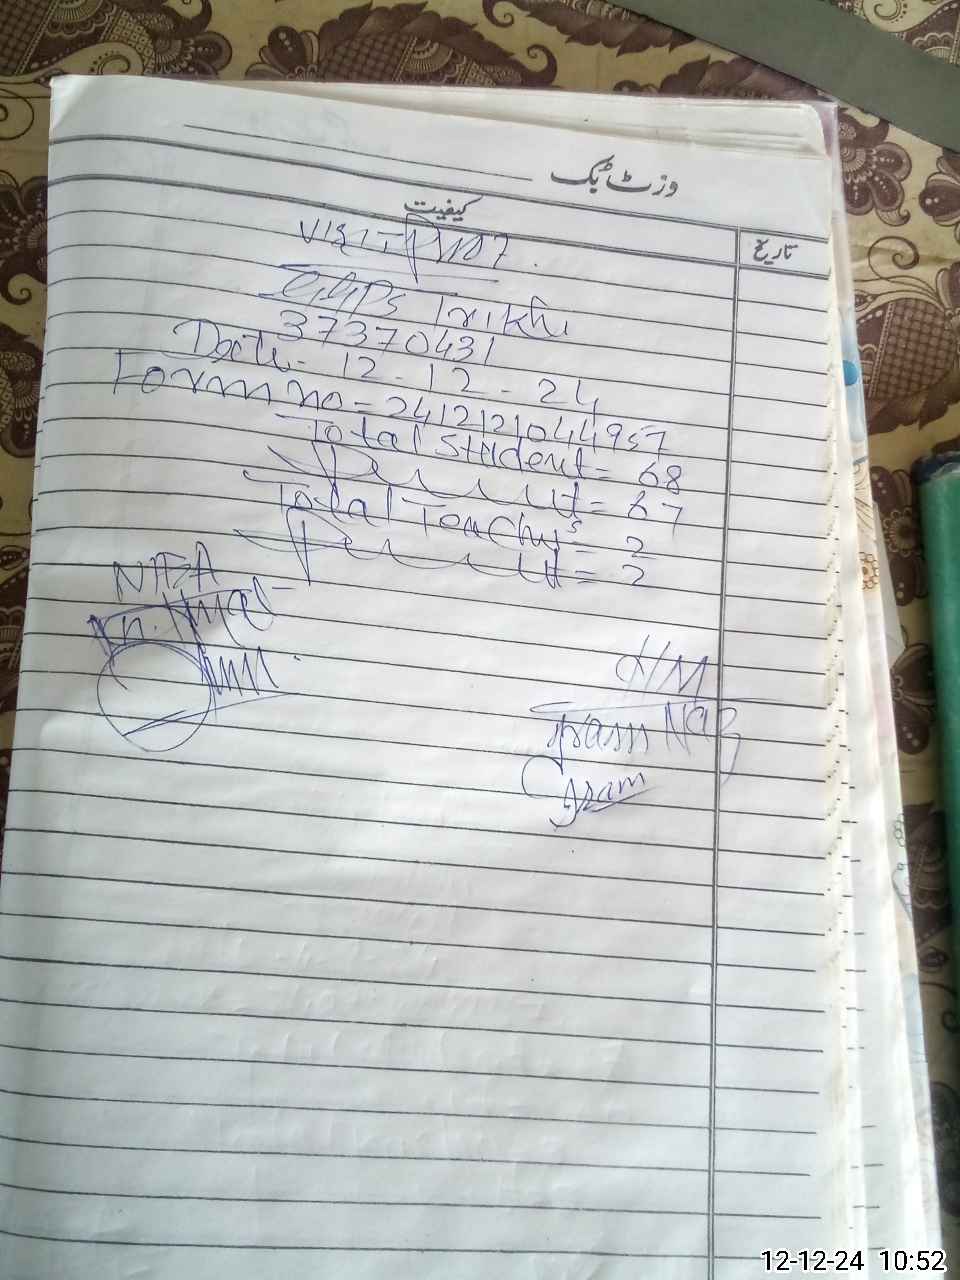 وزٹ بک
کیفیت
تاریخ
Visit
GGPS Trikhi
37370431
Date - 12 - 12 - 24
Form no = 241212104 4957
Total Student = 68
Present = 67
Total Teachers = 2
Present = 2
H/M
Naz
12-12-24 10:52